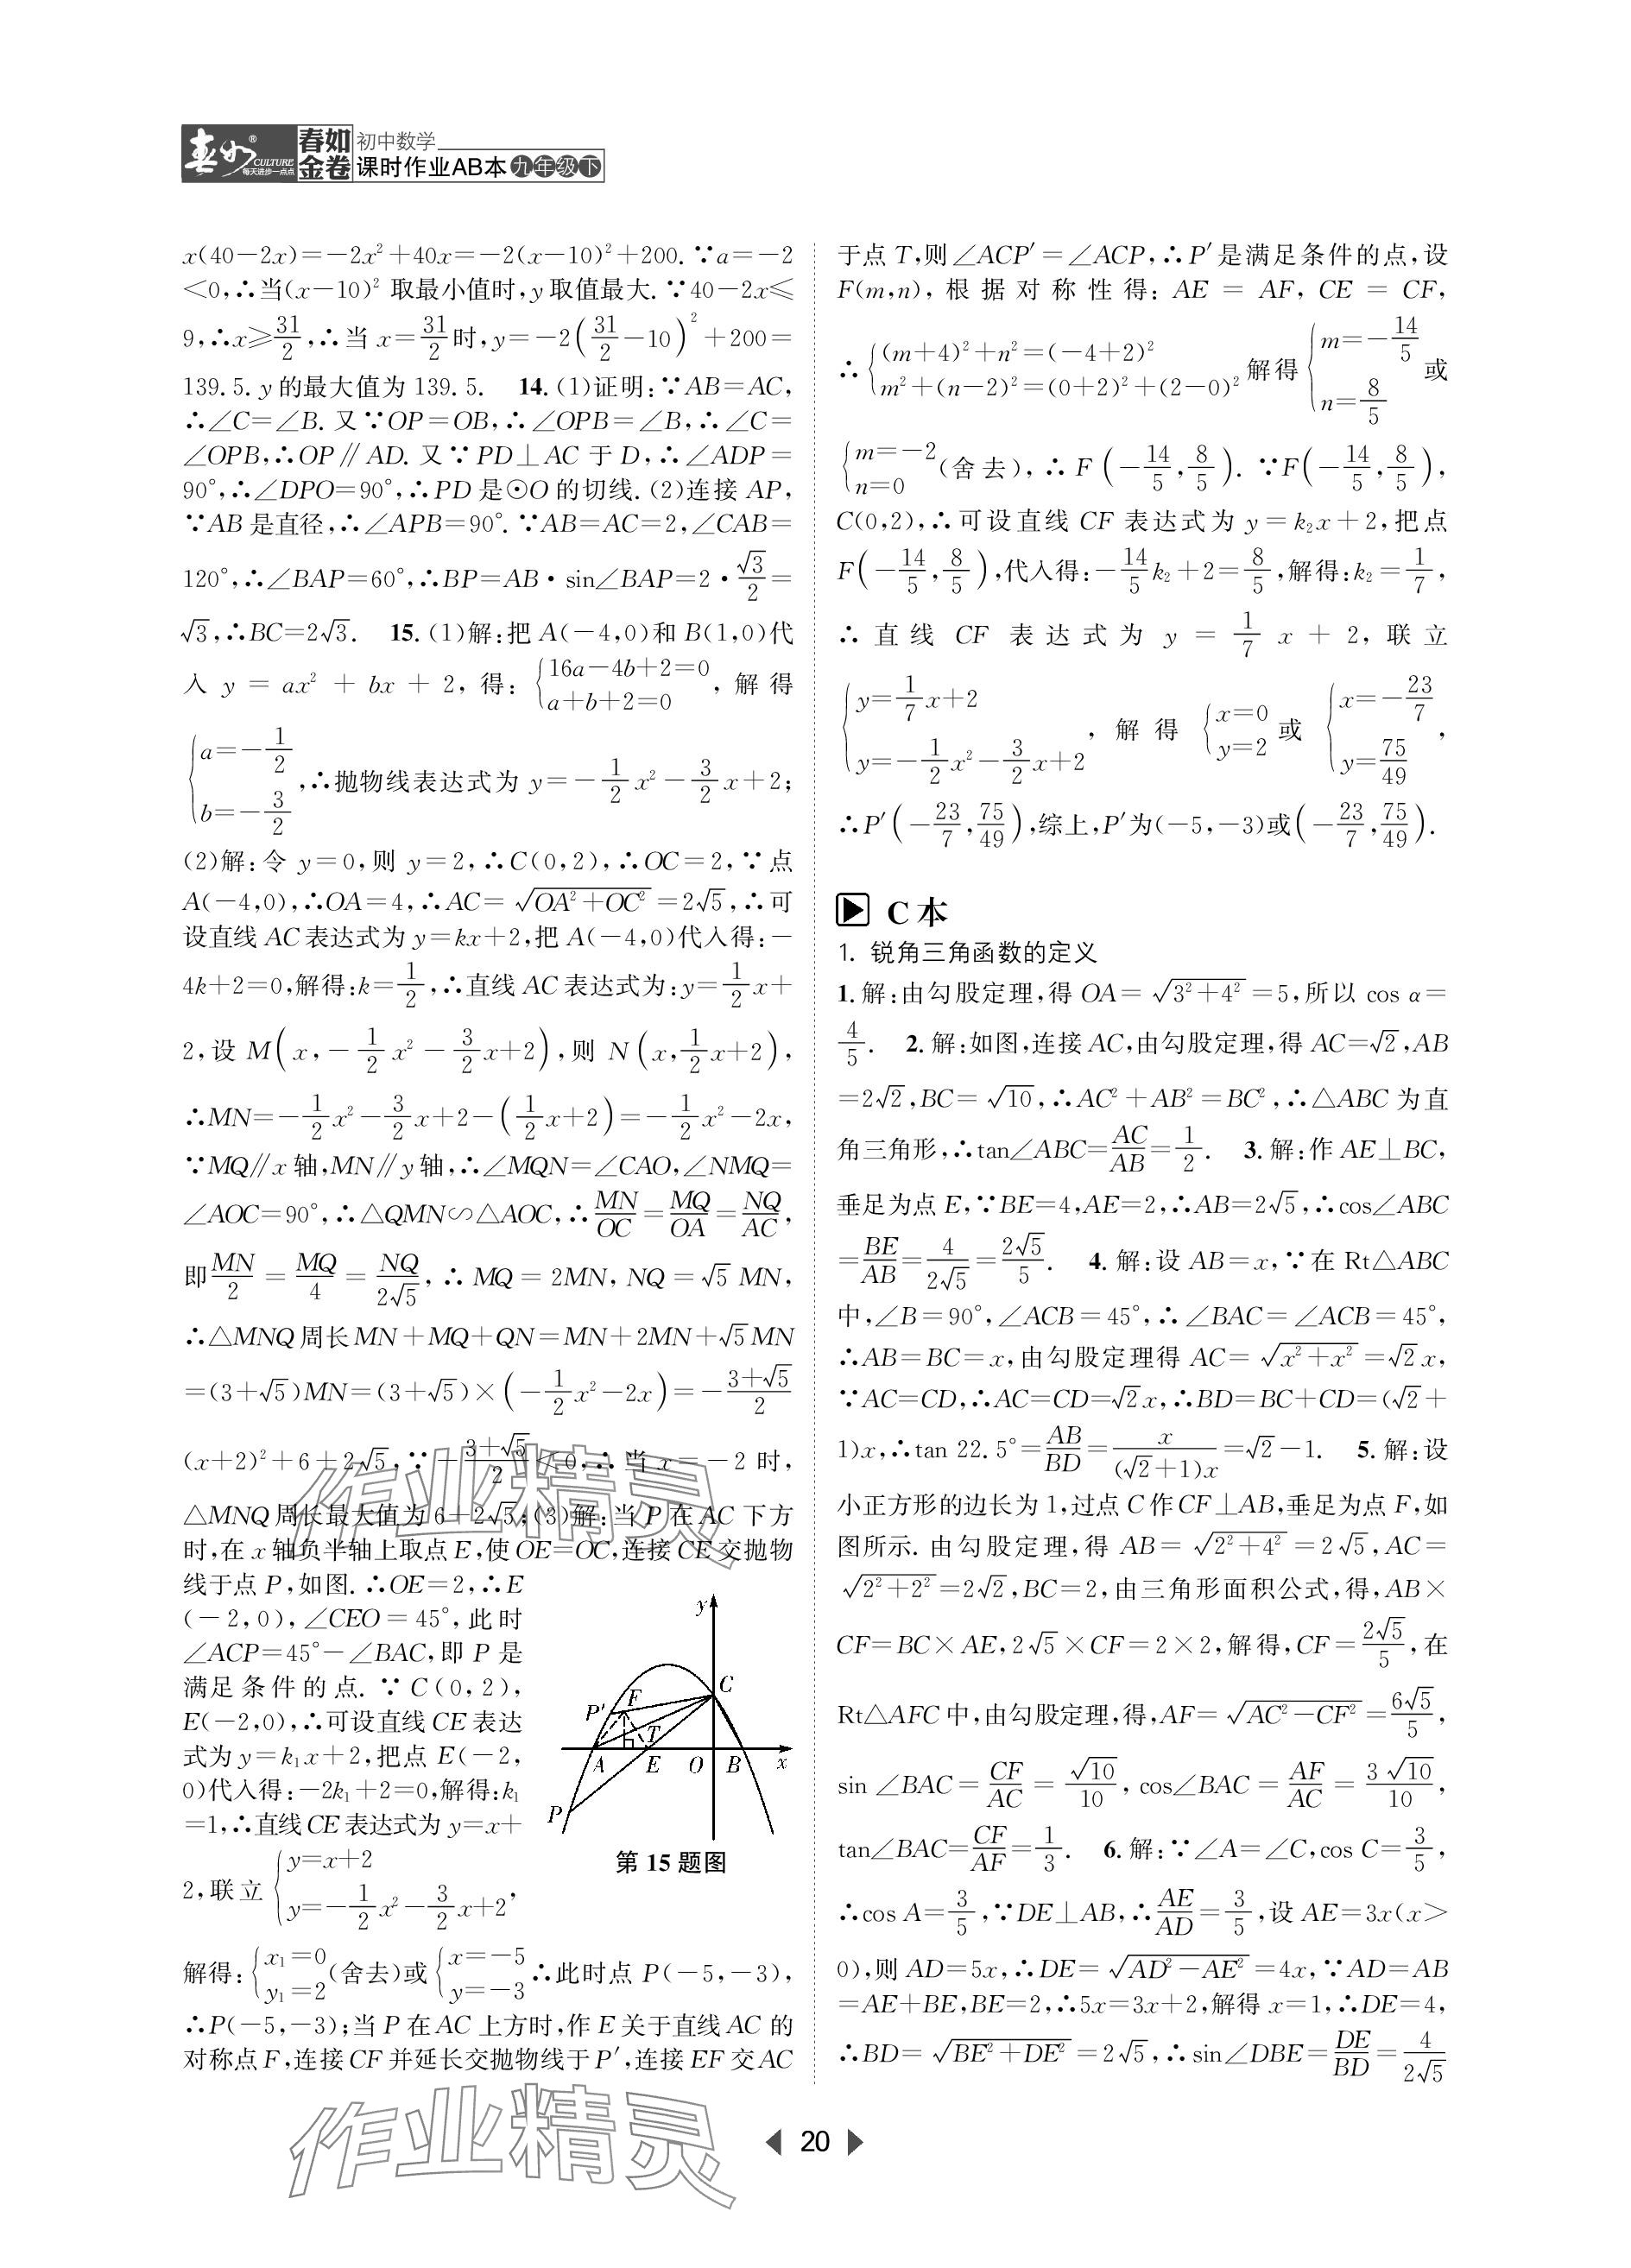 春如® CULTURE 每天进步一点点 春如金卷 初中数学
课时作业AB本 九年级下
x(40−2x)=−2x²+40x=−2(x−10)²+200. ∵a=−2
<0,∴当(x−10)² 取最小值时,y取值最大. ∵40−2x⩽
9,∴x⩾31/2,∴当 x=31/2时,y=−2(31/2−10)²+200=
139.5. y的最大值为139.5. 14. (1)证明:∵AB=AC,
∴∠C=∠B. 又∵OP=OB,∴∠OPB=∠B,∴∠C=
∠OPB,∴OP∥AD. 又∵PD⊥AC 于 D,∴∠ADP=
90°,∴∠DPO=90°,∴PD是⊙O的切线. (2)连接 AP,
∵AB是直径,∴∠APB=90°. ∵AB=AC=2,∠CAB=
120°,∴∠BAP=60°,∴BP=AB·sin∠BAP=2·√3/2=
√3,∴BC=2√3. 15. (1)解:把A(−4,0)和B(1,0)代
入 y = ax² + bx + 2, 得: {16a−4b+2=0 a+b+2=0, 解得
{a=−1/2 b=−3/2,∴抛物线表达式为 y=−1/2x²−3/2x+2;
(2)解:令 y=0,则 y=2,∴C(0,2),∴OC=2,∵点
A(−4,0),∴OA=4,∴AC=√(OA²+OC²)=2√5,∴可
设直线AC表达式为y=kx+2,把A(−4,0)代入得:−
4k+2=0,解得:k=1/2,∴直线AC表达式为:y=1/2x+
2,设 M(x,−1/2x²−3/2x+2),则 N(x,1/2x+2),
∴MN=−1/2x²−3/2x+2−(1/2x+2)=−1/2x²−2x,
∵MQ∥x轴,MN∥y轴,∴∠MQN=∠CAO,∠NMQ=
∠AOC=90°,∴△QMN∽△AOC,∴MN/OC=MQ/OA=NQ/AC,
即MN/2=MQ/4=NQ/2√5,∴MQ=2MN,NQ=√5MN,
∴△MNQ周长MN+MQ+QN=MN+2MN+√5MN
=(3+√5)MN=(3+√5)×(−1/2x²−2x)=−(3+√5)/2
(x+2)²+6+2√5,∵−(3+√5)/2<0,∴当 x=−2 时,
△MNQ周长最大值为6+2√5;(3)解:当P在AC下方
时,在x轴负半轴上取点E,使OE=OC,连接CE交抛物
线于点P,如图. ∴OE=2,∴E
(−2,0),∠CEO=45°,此时
∠ACP=45°−∠BAC,即 P 是
满足条件的点. ∵C(0,2),
E(−2,0),∴可设直线CE表达
式为y=k₁x+2,把点 E(−2,
0)代入得:−2k₁+2=0,解得:k₁
=1,∴直线CE表达式为y=x+
2,联立{y=x+2 y=−1/2x²−3/2x+2,
y C P' F T A E O B x P
第15题图
解得:{x₁=0 y₁=2(舍去)或{x=−5 y=−3∴此时点 P(−5,−3),
∴P(−5,−3);当P在AC上方时,作E关于直线AC的
对称点F,连接CF并延长交抛物线于P′,连接EF交AC
于点T,则∠ACP′=∠ACP,∴P′是满足条件的点,设
F(m,n),根据对称性得: AE = AF, CE = CF,
∴{(m+4)²+n²=(−4+2)² m²+(n−2)²=(0+2)²+(2−0)²解得{m=−14/5 n=8/5或
{m=−2 n=0(舍去),∴F(−14/5,8/5). ∵F(−14/5,8/5),
C(0,2),∴可设直线 CF 表达式为 y=k₂x+2,把点
F(−14/5,8/5),代入得:−14/5k₂+2=8/5,解得:k₂=1/7,
∴直线 CF 表达式为 y = 1/7 x + 2, 联立
{y=1/7x+2 y=−1/2x²−3/2x+2, 解得 {x=0 y=2或 {x=−23/7 y=75/49,
∴P′(−23/7,75/49),综上,P′为(−5,−3)或(−23/7,75/49).
C本
1. 锐角三角函数的定义
1. 解:由勾股定理,得 OA=√(3²+4²)=5,所以 cos α=
4/5. 2. 解:如图,连接AC,由勾股定理,得AC=√2,AB
=2√2,BC=√10,∴AC²+AB²=BC²,∴△ABC为直
角三角形,∴tan∠ABC=AC/AB=1/2. 3. 解:作AE⊥BC,
垂足为点E,∵BE=4,AE=2,∴AB=2√5,∴cos∠ABC
=BE/AB=4/2√5=2√5/5. 4. 解:设 AB=x,∵在 Rt△ABC
中,∠B=90°,∠ACB=45°,∴∠BAC=∠ACB=45°,
∴AB=BC=x,由勾股定理得 AC=√(x²+x²)=√2x,
∵AC=CD,∴AC=CD=√2x,∴BD=BC+CD=(√2+
1)x,∴tan 22.5°=AB/BD=x/(√2+1)x=√2−1. 5. 解:设
小正方形的边长为1,过点C作CF⊥AB,垂足为点F,如
图所示. 由勾股定理,得 AB=√(2²+4²)=2√5,AC=
√(2²+2²)=2√2,BC=2,由三角形面积公式,得,AB×
CF=BC×AE,2√5×CF=2×2,解得,CF=2√5/5,在
Rt△AFC中,由勾股定理,得,AF=√(AC²−CF²)=6√5/5,
sin∠BAC=CF/AC=√10/10,cos∠BAC=AF/AC=3√10/10,
tan∠BAC=CF/AF=1/3. 6. 解:∵∠A=∠C,cos C=3/5,
∴cos A=3/5,∵DE⊥AB,∴AE/AD=3/5,设 AE=3x(x>
0),则AD=5x,∴DE=√(AD²−AE²)=4x,∵AD=AB
=AE+BE,BE=2,∴5x=3x+2,解得x=1,∴DE=4,
∴BD=√(BE²+DE²)=2√5,∴sin∠DBE=DE/BD=4/2√5
作业精灵
作业精灵
20